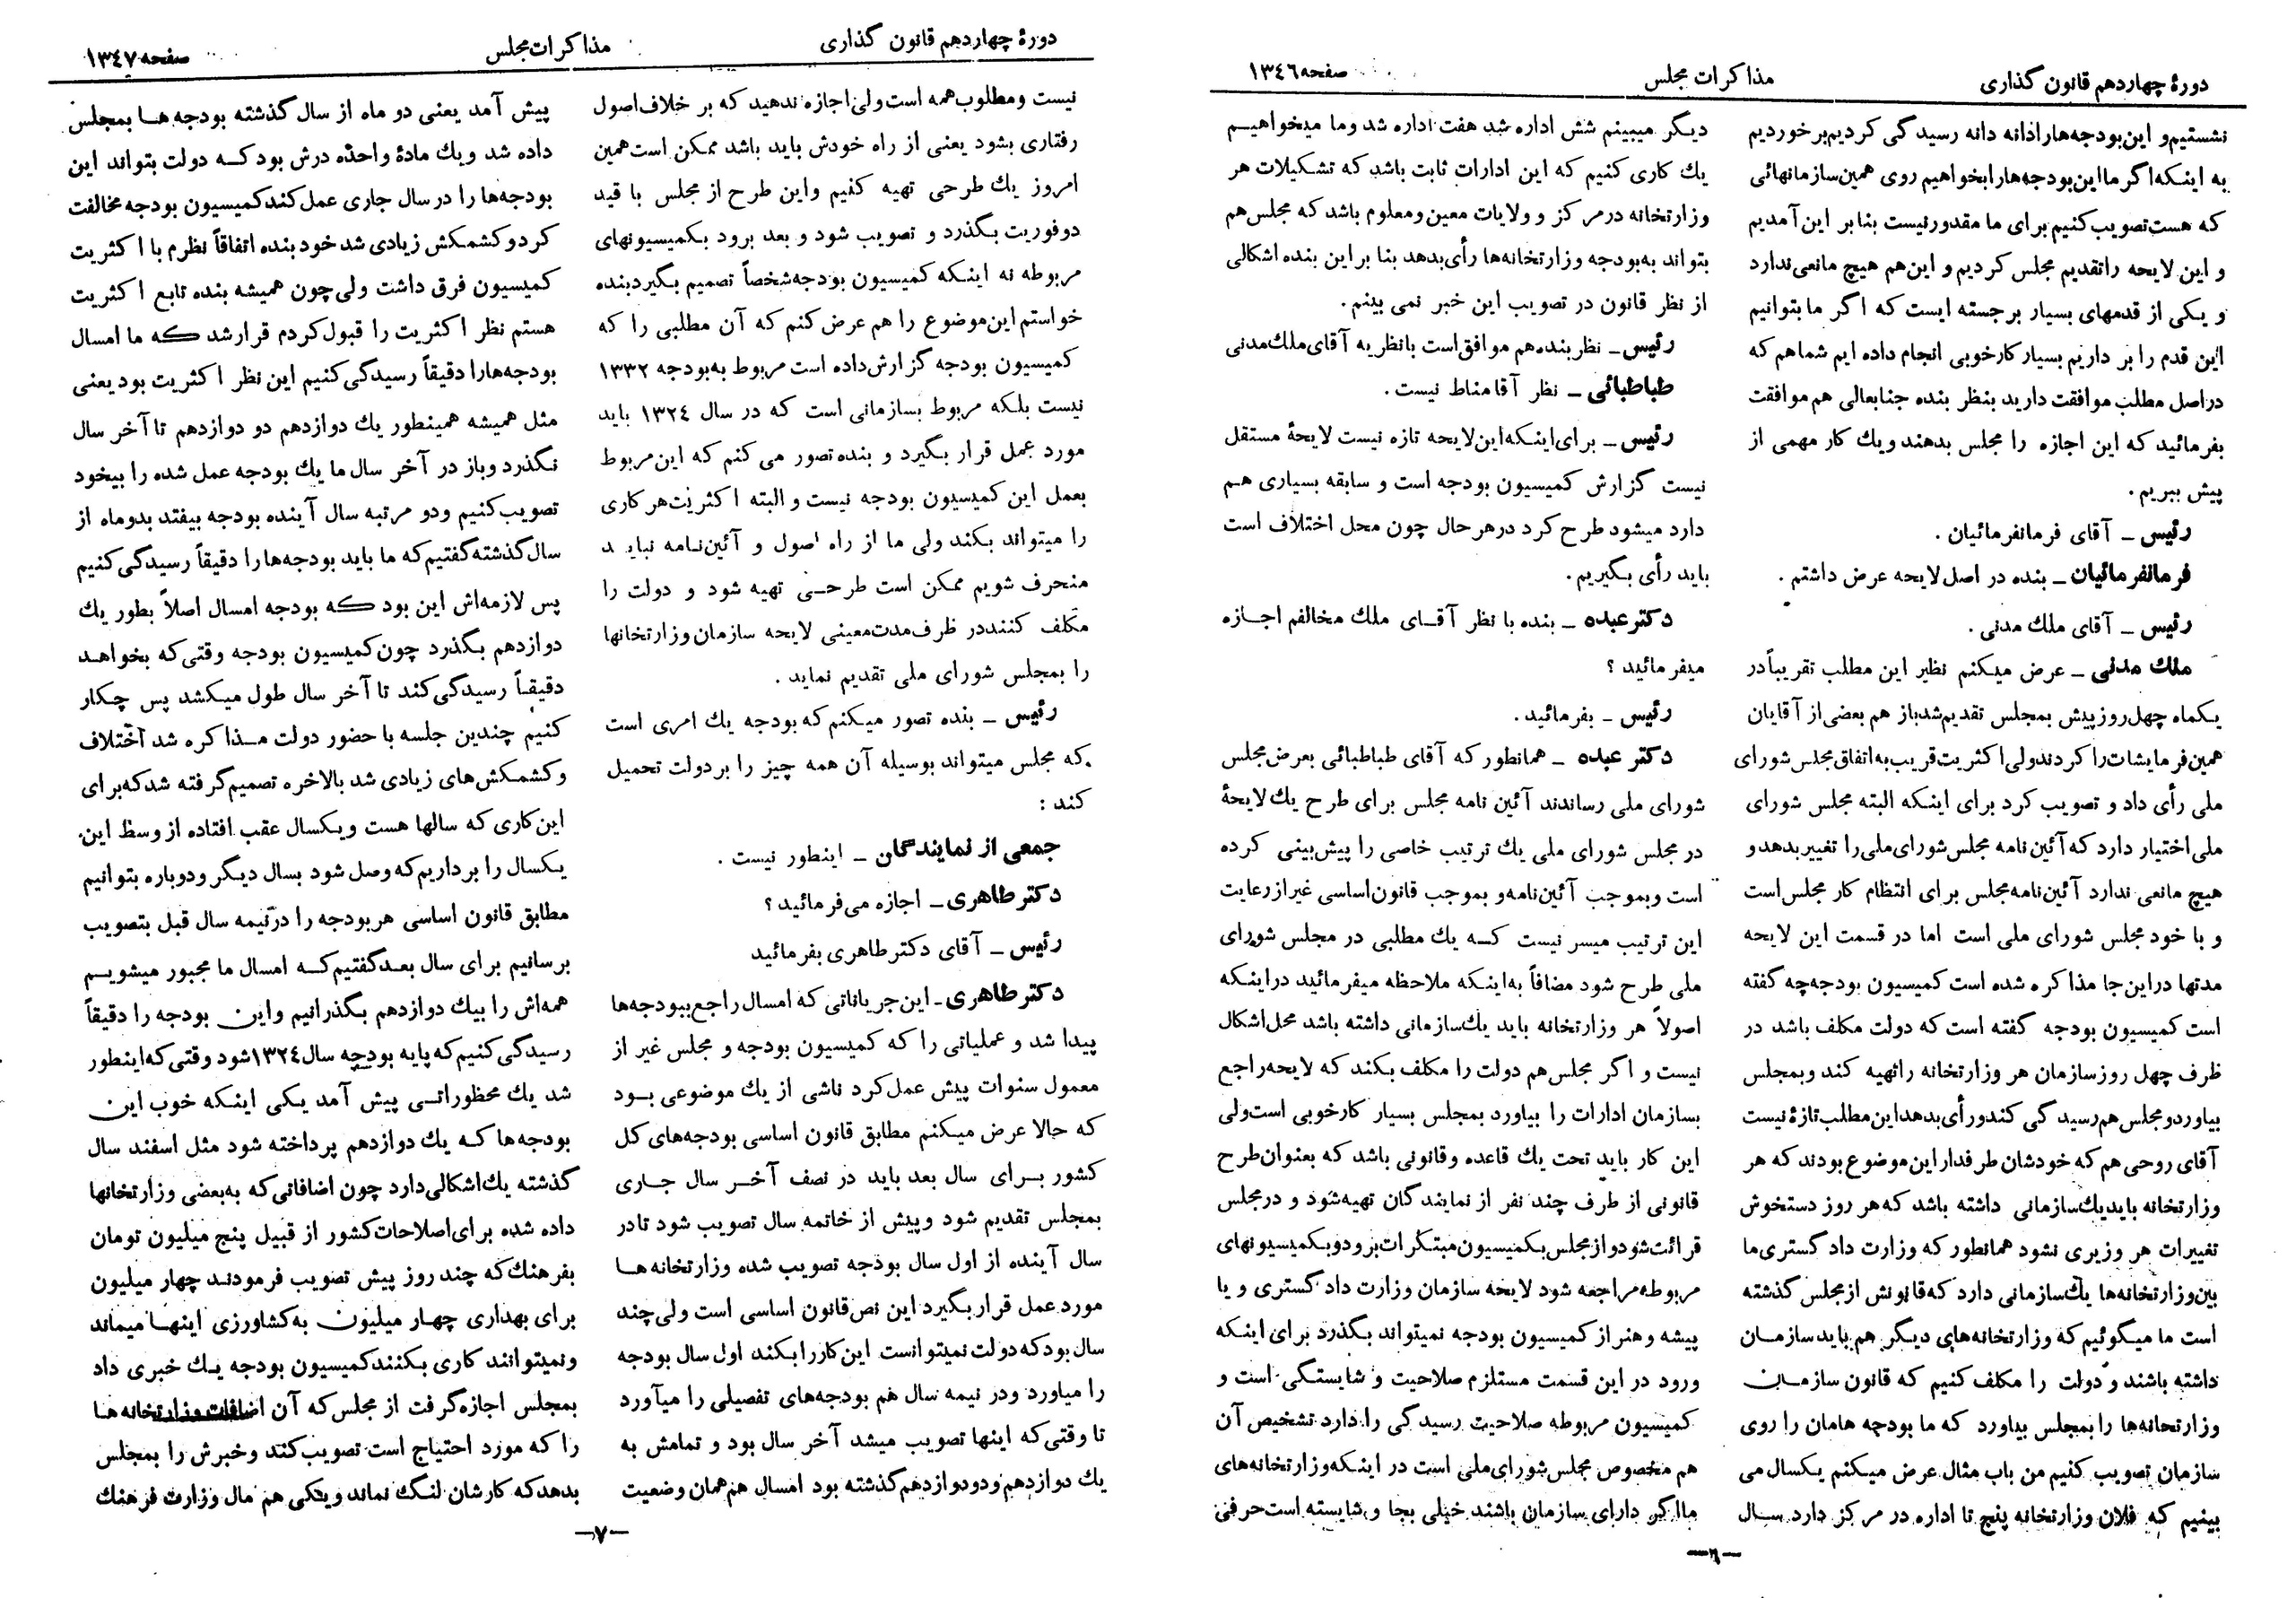 دورهٔ چهاردهم قانون گذاری
مذاکرات مجلس
صفحه ۱۳۴۶
نشستیم و این بودجه‌ها را دانه دانه رسیدگی کردیم برخوردیم
به اینکه اگر ما این بودجه‌ها را بخواهیم روی همین سازمانهائی
که هست تصویب کنیم برای ما مقدور نیست بنابر این آمدیم
و این لایحه را تقدیم مجلس کردیم و این هم هیچ مانعی ندارد
و یکی از قدمهای بسیار برجسته ایست که اگر ما بتوانیم
این قدم را بر داریم بسیار کار خوبی انجام داده ایم شما هم که
در اصل مطلب موافقت دارید بنظر بنده جنابعالی هم موافقت
بفرمائید که این اجازه را مجلس بدهند و یك کار مهمی از
پیش ببریم .
رئیس ـ آقای فرمانفرمائیان .
فرمانفرمائیان ـ بنده در اصل لایحه عرض داشتم .
رئیس ـ آقای ملك مدنی .
ملك مدنی ـ عرض میکنم نظیر این مطلب تقریباً در
یکماه چهل روز پیش بمجلس تقدیم شد باز هم بعضی از آقایان
همین فرمایشات را کردند ولی اکثریت قریب به اتفاق مجلس شورای
ملی رأی داد و تصویب کرد برای اینکه البته مجلس شورای
ملی اختیار دارد که آئین نامه مجلس شورای ملی را تغییر بدهد و
هیچ مانعی ندارد آئین نامه مجلس برای انتظام کار مجلس است
و با خود مجلس شورای ملی است اما در قسمت این لایحه
مدتها در این جا مذاکره شده است کمیسیون بودجه چه گفته
است کمیسیون بودجه گفته است که دولت مکلف باشد در
ظرف چهل روز سازمان هر وزارتخانه را تهیه کند و بمجلس
بیاورد و مجلس هم رسیدگی کند و رأی بدهد این مطلب تازهٔ نیست
آقای روحی هم که خودشان طرفدار این موضوع بودند که هر
وزارتخانه باید یك سازمانی داشته باشد که هر روز دستخوش
تغییرات هر وزیری نشود همانطور که وزارت دادگستری ما
بین وزارتخانه‌ها یك سازمانی دارد که قانونش از مجلس گذشته
است ما میگوئیم که وزارتخانه‌های دیگر هم باید سازمان
داشته باشند و دولت را مکلف کنیم که قانون سازمان
وزارتخانه‌ها را بمجلس بیاورد که ما بودجه هامان را روی
سازمان تصویب کنیم من باب مثال عرض میکنم یکسال می
بینیم که فلان وزارتخانه پنج تا اداره در مرکز دارد سال
دیگر میبینم شش اداره شد هفت اداره شد و ما میخواهیم
یك کاری کنیم که این ادارات ثابت باشد که تشکیلات هر
وزارتخانه در مرکز و ولایات معین و معلوم باشد که مجلس هم
بتواند به بودجه وزارتخانه‌ها رأی بدهد بنا بر این بنده اشکالی
از نظر قانون در تصویب این خبر نمی بینم .
رئیس ـ نظر بنده هم موافق است با نظریه آقای ملك مدنی
طباطبائی ـ نظر آقا مناط نیست .
رئیس ـ برای اینکه این لایحه تازه نیست لایحهٔ مستقل
نیست گزارش کمیسیون بودجه است و سابقه بسیاری هم
دارد میشود طرح کرد در هر حال چون محل اختلاف است
باید رأی بگیریم .
دکتر عبده ـ بنده با نظر آقای ملك مخالفم اجازه
میفرمائید ؟
رئیس ـ بفرمائید .
دکتر عبده ـ همانطور که آقای طباطبائی بعرض مجلس
شورای ملی رساندند آئین نامه مجلس برای طرح یك لایحهٔ
در مجلس شورای ملی یك ترتیب خاصی را پیش‌بینی کرده
است و بموجب آئین‌نامه و بموجب قانون اساسی غیر از رعایت
این ترتیب میسر نیست که یك مطلبی در مجلس شورای
ملی طرح شود مضافاً به اینکه ملاحظه میفرمائید در اینکه
اصولاً هر وزارتخانه باید یك سازمانی داشته باشد محل اشکال
نیست و اگر مجلس هم دولت را مکلف بکند که لایحه راجع
بسازمان ادارات را بیاورد بمجلس بسیار کار خوبی است ولی
این کار باید تحت یك قاعده و قانونی باشد که بعنوان طرح
قانونی از طرف چند نفر از نمایندگان تهیه شود و در مجلس
قرائت شود و از مجلس بکمیسیون مبتکرات برود و بکمیسیونهای
مربوطه مراجعه شود لایحه سازمان وزارت دادگستری و یا
پیشه و هنر از کمیسیون بودجه نمیتواند بگذرد برای اینکه
ورود در این قسمت مستلزم صلاحیت و شایستگی است و
کمیسیون مربوطه صلاحیت رسیدگی را دارد تشخیص آن
هم مخصوص مجلس شورای ملی است در اینکه وزارتخانه‌های
ما اگر دارای سازمان باشند خیلی بجا و شایسته است حرفی
ـ۶ـ
دورهٔ چهاردهم قانون گذاری
مذاکرات مجلس
صفحه ۱۳۴۷
نیست و مطلوب همه است ولی اجازه ندهید که بر خلاف اصول
رفتاری بشود یعنی از راه خودش باید باشد ممکن است همین
امروز یك طرحی تهیه کنیم و این طرح از مجلس با قید
دو فوریت بگذرد و تصویب شود و بعد برود بکمیسیونهای
مربوطه نه اینکه کمیسیون بودجه شخصاً تصمیم بگیرد بنده
خواستم این موضوع را هم عرض کنم که آن مطلبی را که
کمیسیون بودجه گزارش داده است مربوط به بودجه ۱۳۳۲
نیست بلکه مربوط بسازمانی است که در سال ۱۳۲۴ باید
مورد عمل قرار بگیرد و بنده تصور می کنم که این مربوط
بعمل این کمیسیون بودجه نیست و البته اکثریت هر کاری
را میتواند بکند ولی ما از راه اصول و آئین‌نامه نباید
منحرف شویم ممکن است طرحی تهیه شود و دولت را
مکلف کنند در ظرف مدت معینی لایحه سازمان وزارتخانها
را بمجلس شورای ملی تقدیم نماید .
رئیس ـ بنده تصور میکنم که بودجه یك امری است
که مجلس میتواند بوسیله آن همه چیز را بر دولت تحمیل
کند :
جمعی از نمایندگان ـ اینطور نیست .
دکتر طاهری ـ اجازه می‌فرمائید ؟
رئیس ـ آقای دکتر طاهری بفرمائید
دکتر طاهری ـ این جریاناتی که امسال راجع ببودجه‌ها
پیدا شد و عملیاتی را که کمیسیون بودجه و مجلس غیر از
معمول سنوات پیش عمل کرد ناشی از یك موضوعی بود
که حالا عرض میکنم مطابق قانون اساسی بودجه‌های کل
کشور برای سال بعد باید در نصف آخر سال جاری
بمجلس تقدیم شود و پیش از خاتمه سال تصویب شود تا در
سال آینده از اول سال بودجه تصویب شده وزارتخانه ها
مورد عمل قرار بگیرد این نص قانون اساسی است ولی چند
سال بود که دولت نمیتوانست این کار را بکند اول سال بودجه
را میاورد و در نیمه سال هم بودجه‌های تفصیلی را میآورد
تا وقتی که اینها تصویب میشد آخر سال بود و تمامش به
یك دوازدهم و دو دوازدهم گذشته بود امسال هم همان وضعیت
پیش آمد یعنی دو ماه از سال گذشته بودجه ها بمجلس
داده شد و یك مادهٔ واحده درش بود که دولت بتواند این
بودجه‌ها را در سال جاری عمل کند کمیسیون بودجه مخالفت
کرد و کشمکش زیادی شد خود بنده اتفاقاً نظرم با اکثریت
کمیسیون فرق داشت ولی چون همیشه بنده تابع اکثریت
هستم نظر اکثریت را قبول کردم قرار شد که ما امسال
بودجه‌ها را دقیقاً رسیدگی کنیم این نظر اکثریت بود یعنی
مثل همیشه همینطور یك دوازدهم دو دوازدهم تا آخر سال
نگذرد و باز در آخر سال ما یك بودجه عمل شده را بیخود
تصویب کنیم و دو مرتبه سال آینده بودجه بیفتد بدو ماه از
سال گذشته گفتیم که ما باید بودجه‌ها را دقیقاً رسیدگی کنیم
پس لازمه‌اش این بود که بودجه امسال اصلاً بطور یك
دوازدهم بگذرد چون کمیسیون بودجه وقتی که بخواهد
دقیقاً رسیدگی کند تا آخر سال طول میکشد پس چکار
کنیم چندین جلسه با حضور دولت مذاکره شد اختلاف
و کشمکش‌های زیادی شد بالاخره تصمیم گرفته شد که برای
این کاری که سالها هست و یکسال عقب افتاده از وسط این
یکسال را برداریم که وصل شود بسال دیگر و دوباره بتوانیم
مطابق قانون اساسی هر بودجه را در نیمه سال قبل بتصویب
برسانیم برای سال بعد گفتیم که امسال ما مجبور میشویم
همه‌اش را بیك دوازدهم بگذرانیم و این بودجه را دقیقاً
رسیدگی کنیم که پایه بودجه سال ۱۳۲۴ شود وقتی که اینطور
شد یك محظوراتی پیش آمد یکی اینکه خوب این
بودجه‌ها که یك دوازدهم پرداخته شود مثل اسفند سال
گذشته یك اشکالی دارد چون اضافاتی که به بعضی وزارتخانها
داده شده برای اصلاحات کشور از قبیل پنج میلیون تومان
بفرهنك که چند روز پیش تصویب فرمودند چهار میلیون
برای بهداری چهار میلیون به کشاورزی اینها میماند
و نمیتوانند کاری بکنند کمیسیون بودجه یك خبری داد
بمجلس اجازه گرفت از مجلس که آن اضافات وزارتخانه ها
را که مورد احتیاج است تصویب کند و خبرش را بمجلس
بدهد که کارشان لنگ نماند و یکی هم مال وزارت فرهنك
ـ۷ـ